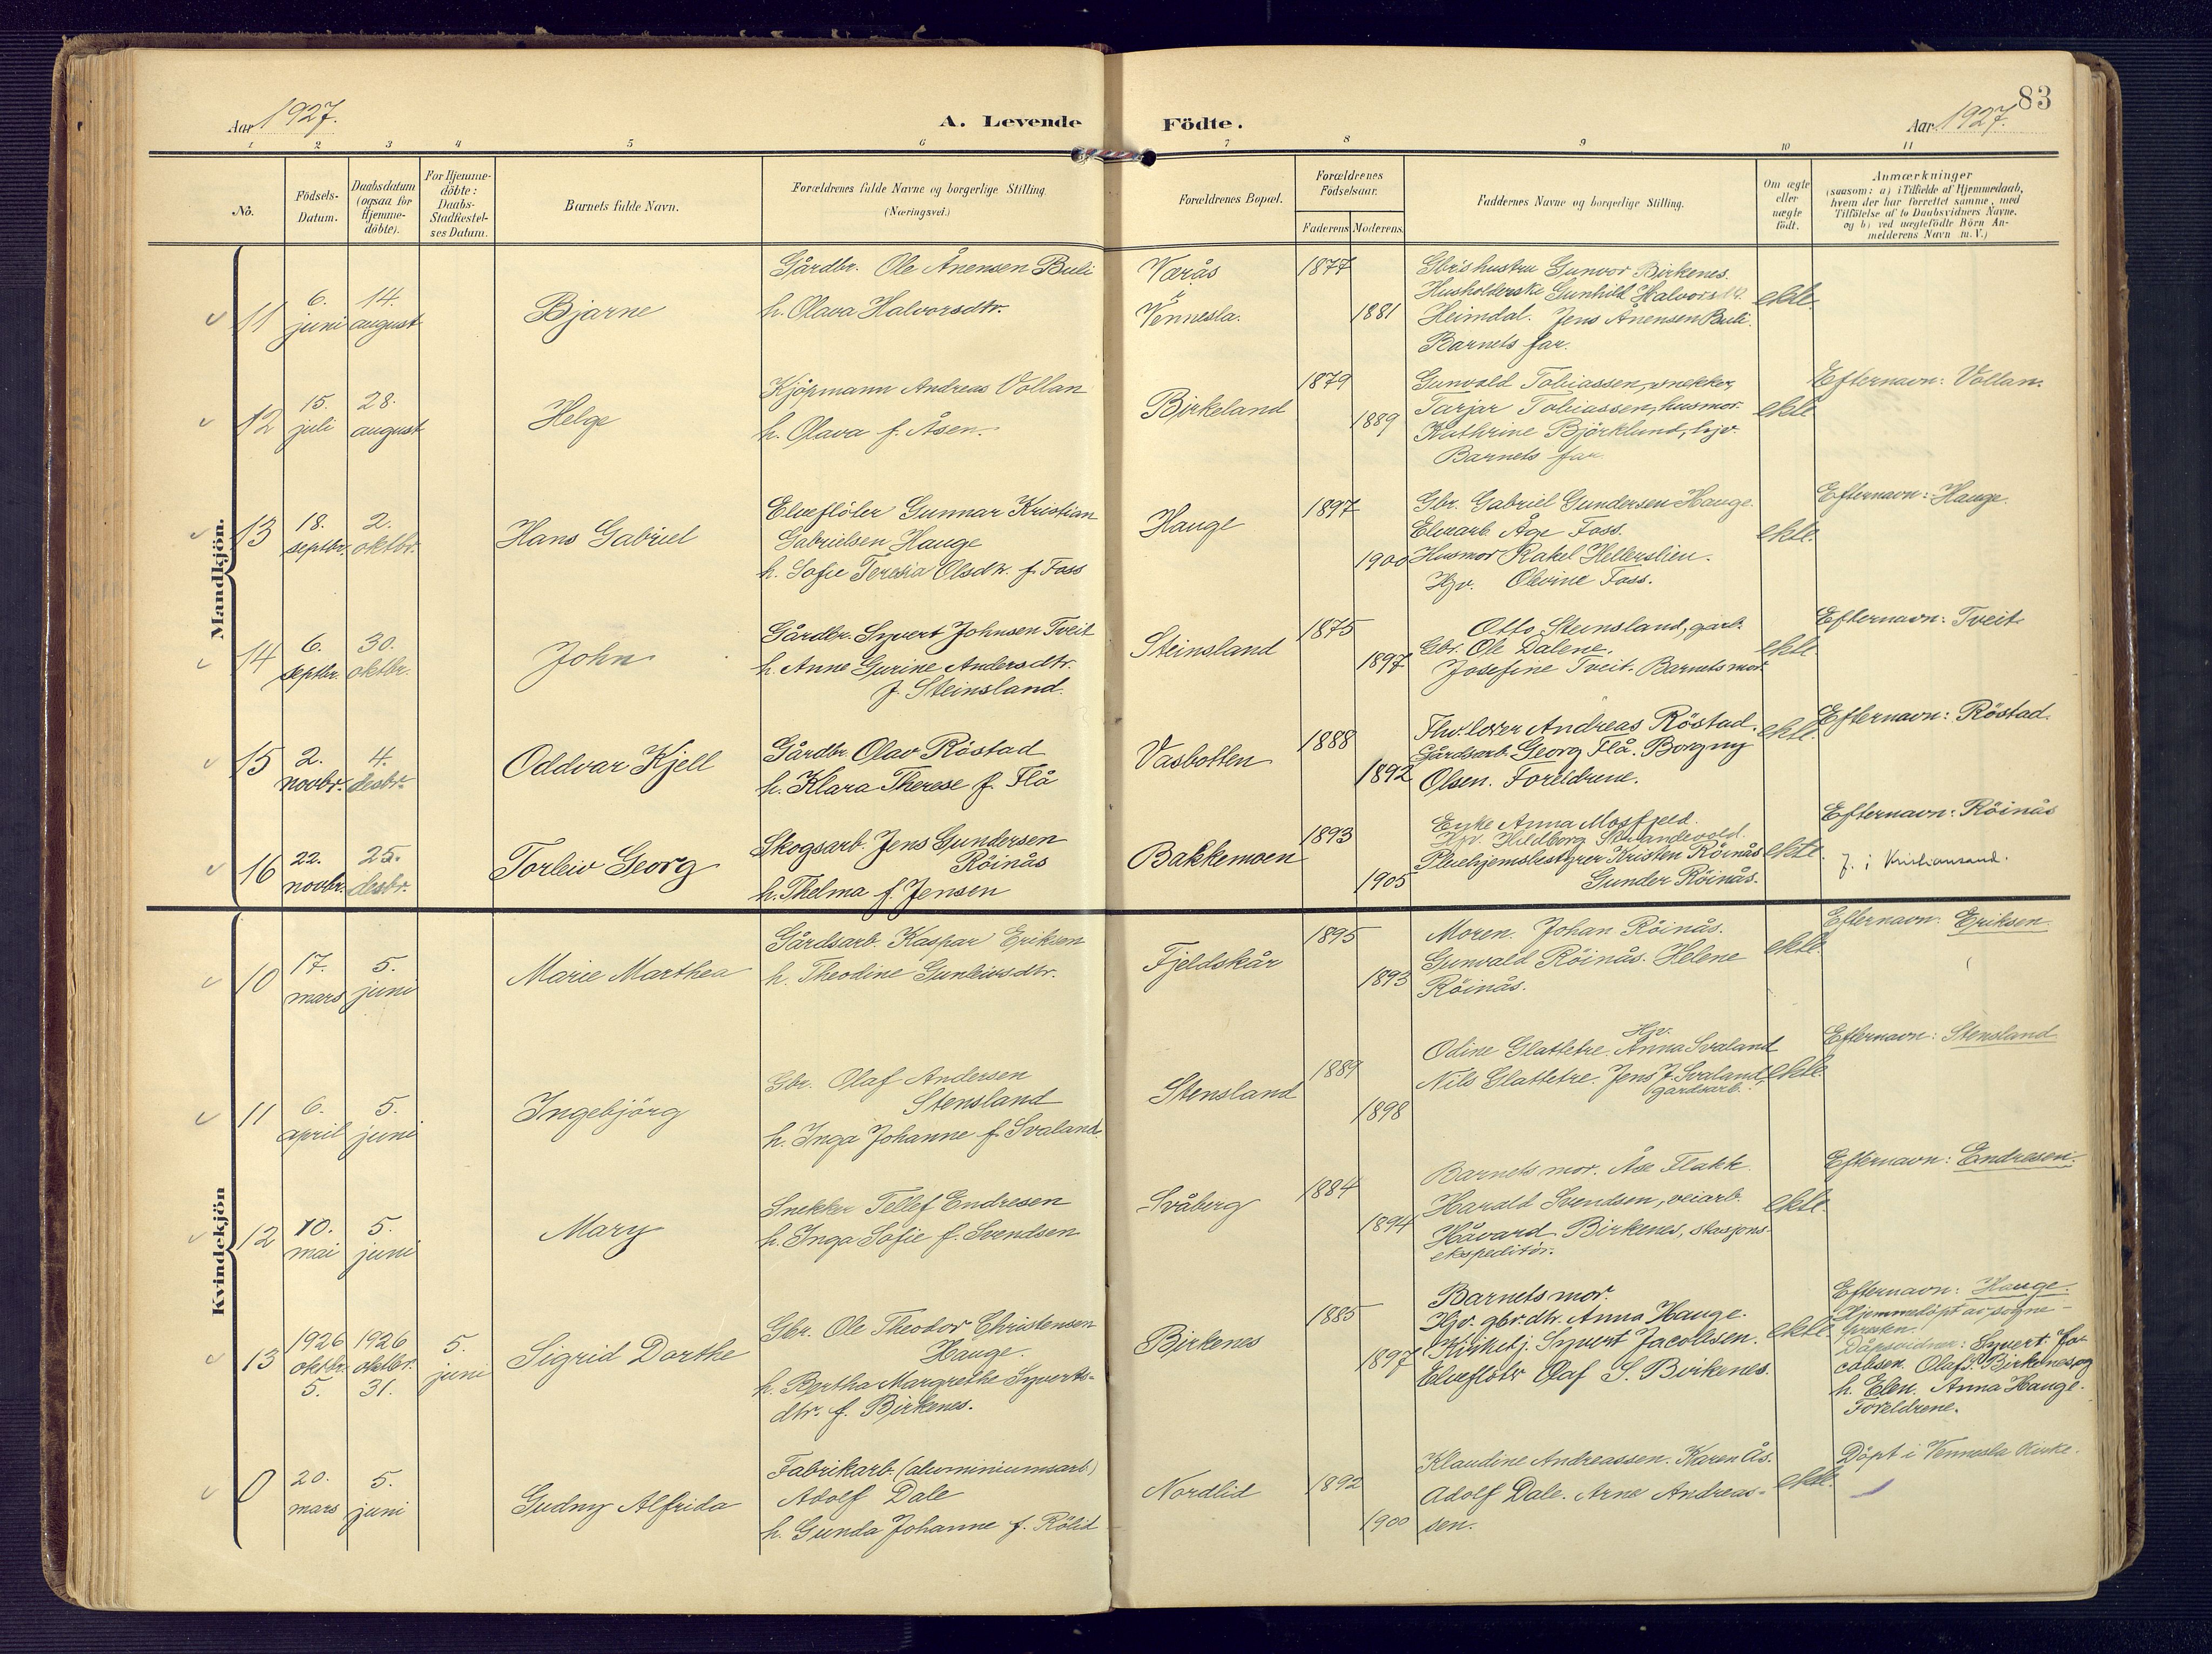 83
Aar 1927.
A. Levende Födte.
Aar 1927.
1 2 3 4 5 6 7 8 9 10 11
No.
Födsels-
Datum.
Daabsdatum
(ogsaa for
Hjemme-
döbte).
For Hjemme-
döbte:
Daabs-
Stadfæstel-
ses Datum.
Barnets fulde Navn.
Forældrenes fulde Navne og borgerlige Stilling.
(Næringsvei.)
Forældrenes Bopæl.
Forældrenes
Födselsaar.
Faderens Moderens.
Faddernes Navne og borgerlige Stilling.
Om ægte
eller
uægte
födt.
Anmærkninger
(saasom: a) i Tilfælde af Hjemmedaab,
hvem der har forrettet samme, med
Tilföielse af to Daabsvidners Navne.
og b) ved uægtefödte Börn An-
melderens Navn m. V.)
Mandkjön.
11
6.
juni
14.
august
Bjarne
Gårdbr. Ole Ånensen Buli
h. Olava Halvorsdtr.
Værås
Vennesla.
1877
1881
Gbr's hustru Gunvor Birkenes.
Husholderske Gunhild Halvorsdtr.
Heimdal. Jens Ånensen Buli.
Barnets far.
ekte.
12
15.
juli
28.
august
Helge
Kjöpmann Andreas Vollan
h. Olava f. Åsen.
Birkeland
1879
1889
Gunvald Tobiassen, snekker,
Tarjar Tobiassen, husmor.
Kathrine Björklund, hjv.
Barnets far.
ekte
Efternavn: Vollan.
13
18.
septbr.
2.
oktbr.
Hans Gabriel
Elveflöter Gunnar Kristian
Gabrielsen Hauge
h. Sofie Teresia Olsdtr. f. Foss
Hauge
1897
1900
Gbr. Gabriel Gundersen Hauge.
Elvearb. Åge Foss.
Husmor Rakel Hellerslien.
Hjv. Olevine Foss.
ekte.
Efternavn: Hauge.
14
6.
septbr.
30.
oktbr.
John
Gårdbr. Syvert Johnsen Tveit
h. Anne Gurine Andersdtr.
f. Steinsland.
Steinsland
1875
1897
Otto Steinsland, garb.
Gbr. Ole Dalene.
Josefine Tveit. Barnets mor.
ekte
Efternavn: Tveit
15
2.
novbr.
4.
desbr.
Oddvar Kjell
Gårdbr Olav Röstad
h. Klara Therese f. Flå
Vasbotten
1888
1892
Andreas Röstad.
Gårdsarb. Georg Flå. Borgny
Olsen. Foreldrene.
ekte.
Efternavn: Röstad.
16
22.
novbr.
25.
desbr.
Torleiv Georg
Skogsarb. Jens Gundersen
Röinås
h. Thelma f. Jensen
Bakkemoen
1893
1905
Enke Anna Mosfjeld.
Hjv. Hildborg Strandevold.
Pleiehjemsbestyrer Kristen Röinås
Gunder Röinås.
ekte.
Efternavn: Röinås
f. i Kristiansand.
Kvindekjön
10
17.
mars
5.
juni
Marie Marthea
Gårdsarb. Kaspar Eriksen
h. Theodine Gunleivsdtr.
Fjeldskår
1895
1893
Moren. Johan Röinås.
Gunvald Röinås. Helene
Röinås.
ekte.
Efternavn: Eriksen
11
6.
april
5.
juni
Ingebjörg
Gbr. Olaf Andersen
Stensland
h. Inga Johanne f. Svaland.
Stensland
1889
1898
Hjv.
Odine Glattetre. Anna Svaland
Nils Glattetre. Jens J. Svaland,
gårdsarb.
ekte
Efternavn: Stensland
12
10.
mai
5.
juni
Mary
Snekker Tellef Endresen
h. Inga Sofie f. Svendsen
Svåberg
1884
1894
Barnets mor. Åse Flakk.
Harald Svendsen, veiarb.
Håvard Birkenes, stasjons-
ekspeditör.
ekte.
Efternavn: Endresen.
13
1926
oktbr.
5.
1926
oktbr.
31.
5.
juni
Sigrid Dorthe
Gbr. Ole Theodor Christensen
Hauge.
h. Bertha Margrethe Syverts-
dtr. f. Birkenes.
Birkenes
1885
1897
Barnets mor.
Hjv. gbr.dtr. Anna Hauge.
Kirketj. Syvert Jacobsen.
Elveflöter Olaf S. Birkenes.
ekte
Efternavn: Hauge.
Hjemmedöpt av sogne-
presten.
Dåpsvidner: Syvert Ja-
cobsen. Olaf S. Birkenes og
h. Elen. Anna Hauge.
Foreldrene.
0
20.
mars
5.
juni
Gudny Alfrida
Fabrikarb. (aluminiumsarb)
Adolf Dale
h. Gunda Johanne f. Rölid
Nordlid
1892
1900
Klaudine Andreassen. Karen Ås.
Adolf Dale. Arne Andreas-
sen.
ekte.
Döpt i Vennesla kirke.